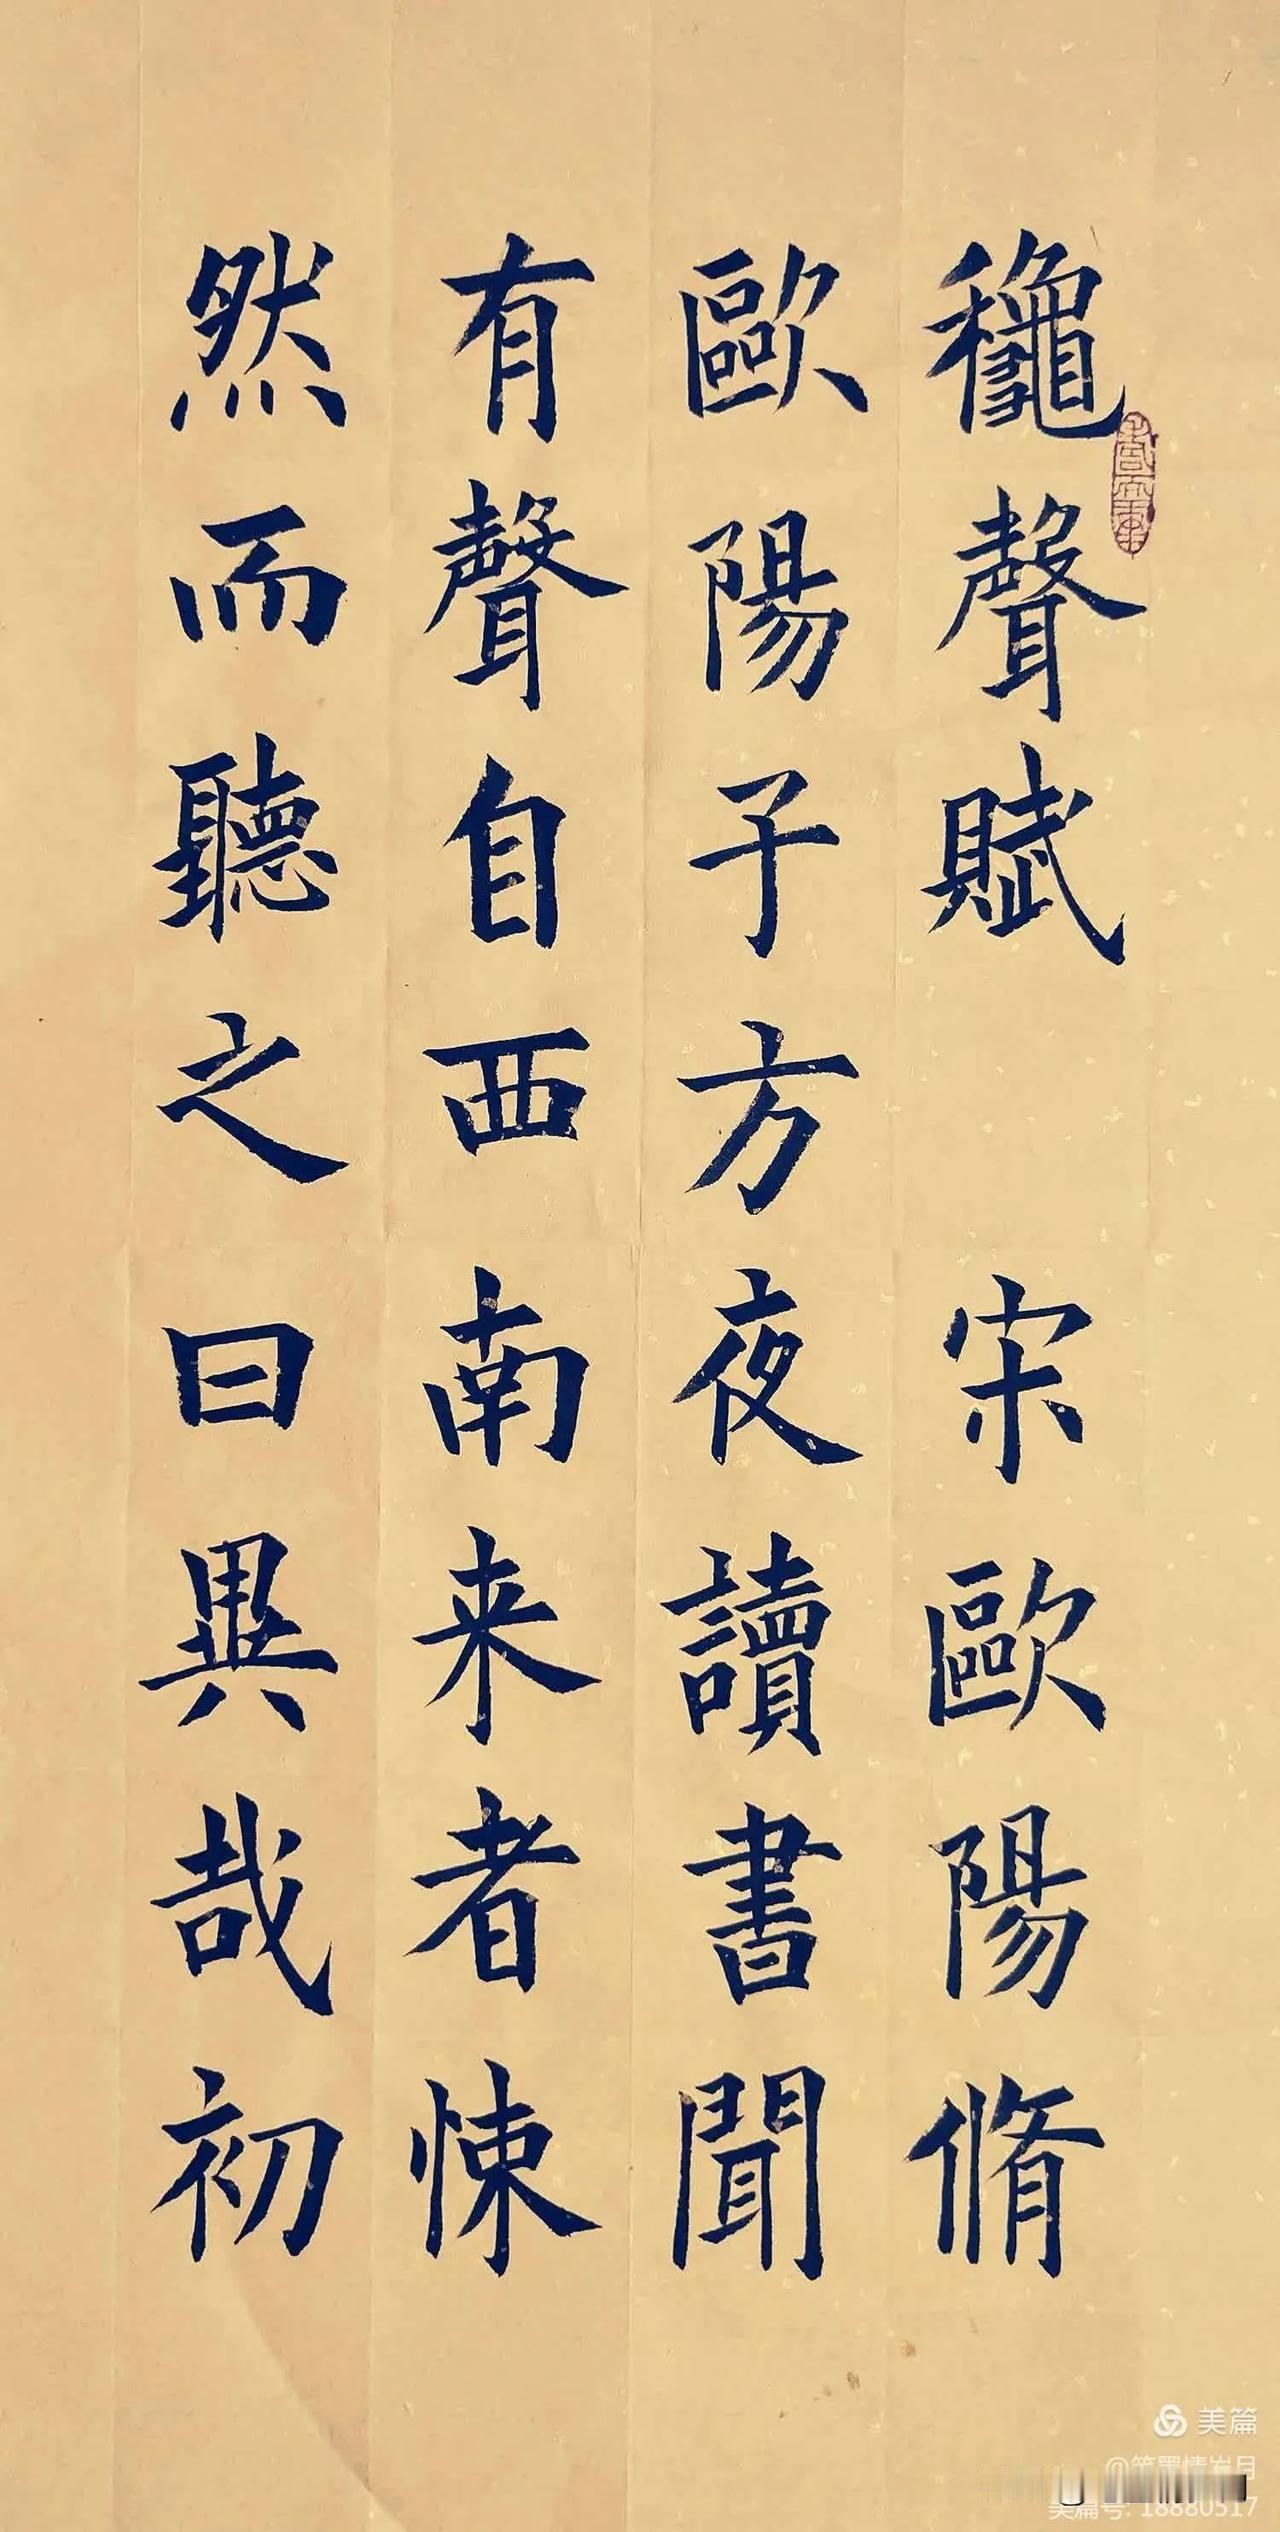 龝聲賦 宋歐陽脩
歐陽子方夜讀書聞
有聲自西南来者悚
然而聽之曰異哉初
美篇
@笔墨情岁月
美篇号: 18880517